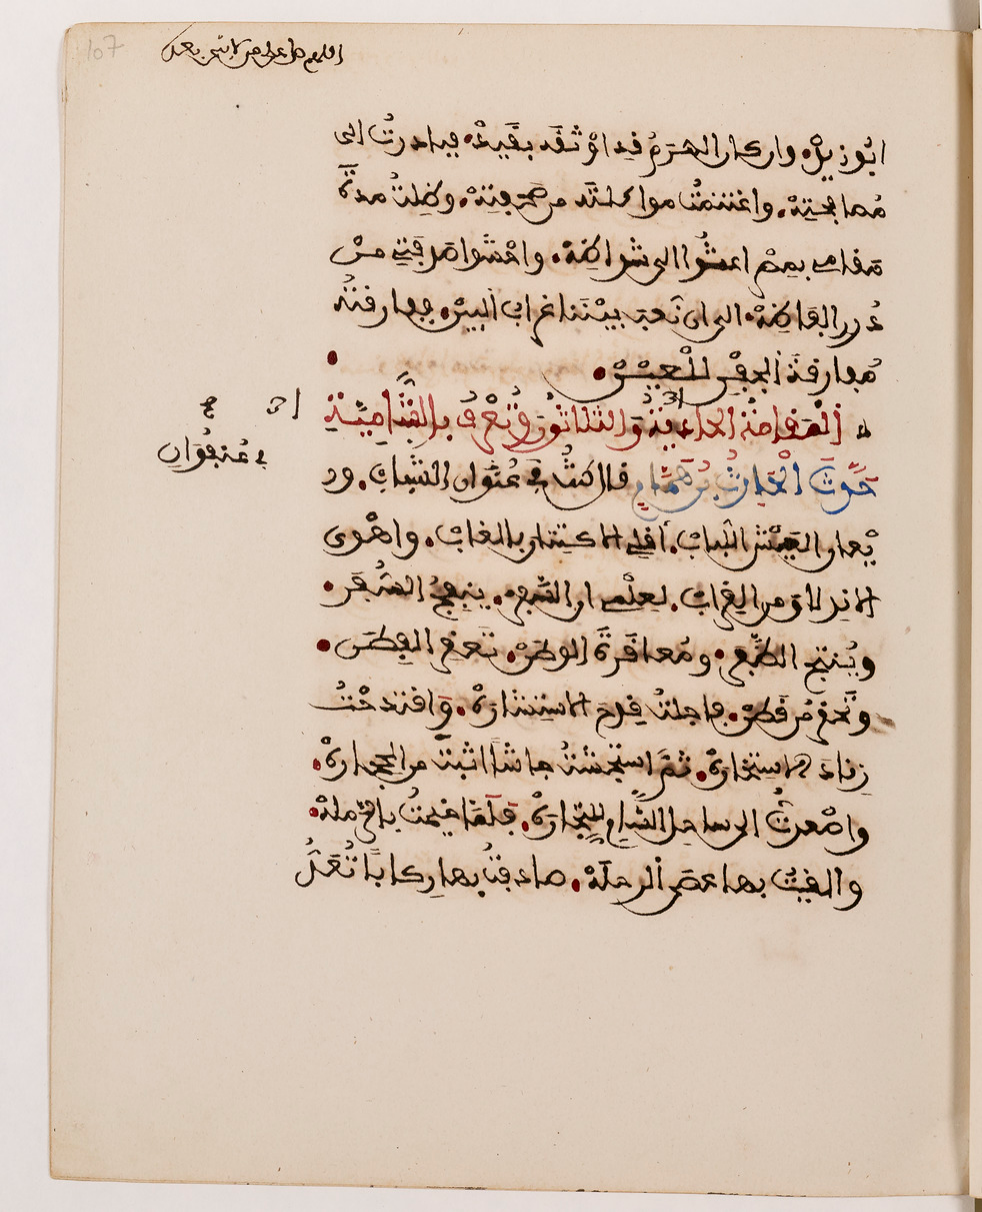 107
اللهم صل على من لا نبي بعده
ابُو زيدْ. وان كان الهَرَمُ قد اوْثقَه بقَيدْ. فبادرتُ الى
مُصافحتِهْ. واغتنمتُ مواكلتَه من صَحفتِهْ. وظِلتُ مدةَ
مَقامي بمصْر اعشُوا الى شُواظِهْ. واحْشوا صَدَفتي منْ
دُرر الفَاظِهْ. الى ان نَعبَ بيْننا غراب البينْ. ففارقتُه
مُفارقةَ الجفْنِ للْعينْ.
المَقَامةُ الحادية وَالثلاثُونَ وتُعْرفُ بالشَّامِيَّةِ
احدى
حَدَّثَ الْحَارثُ بْنُ هَمَّامٍ قال كنتُ في عُنْفُوَان الشباب. ور
في عُنفُوَان
يْعان العَيْش اللُّباب. أقلي الاكتنان بالغاب. واهْوى
الاندلاق من القِراب. لعِلْمي ان السَّفَر. ينفجُ السُّفَر.
ويُنتج الظَّفر. ومُعاقَرةَ الوطَنْ. تَعقر الفِطَن.
وتَحقر مَن قَطنْ. فاجلتُ قِداح الاستشارهْ. وَاقتدحْتُ
زنادَ الاستخارهْ. ثمَّ استجشتُ جاشًا اثبتَ من الحِجارهْ.
واصْعدتُ الى ساحل الشَّامِ للتِّجارهْ. فلَمَّا خيمتُ بالرَّملهْ.
والقيتُ بها عصَى الرحلَهْ. صادفتُ بها رِكابًا تُعَدُّ